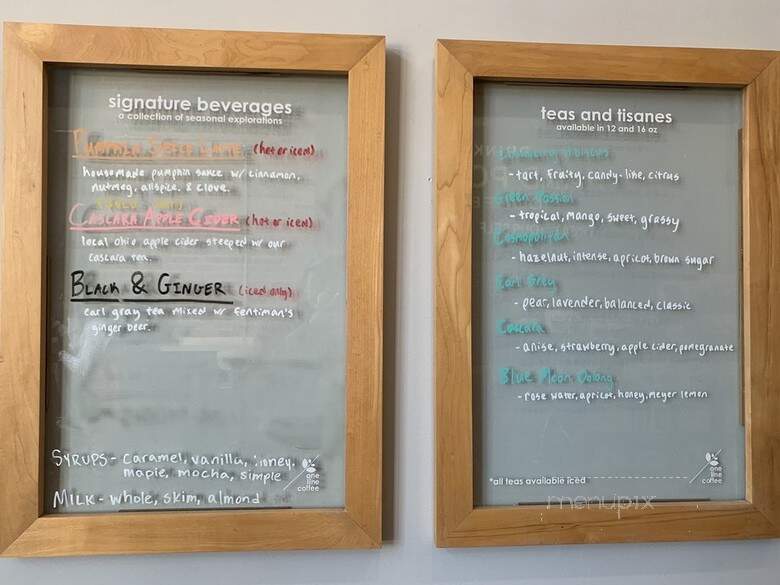 signature beverages
a collection of seasonal explorations
Pumpkin Spice Latte (hot or iced)
housemade pumpkin sauce w/ cinnamon,
nutmeg, allspice & clove.
Cascara Apple Cider (hot or iced)
local ohio apple cider steeped w/ our
cascara tea.
Black & Ginger (iced only)
earl gray tea mixed w/ fentiman's
ginger beer.
Syrups - caramel, vanilla, honey,
maple, mocha, simple
Milk - whole, skim, almond
one
line
coffee
teas and tisanes
available in 12 and 16 oz
Hibiscus
- tart, fruity, candy-like, citrus
Green Passion
- tropical, mango, sweet, grassy
Cosmopolitan
- hazelnut, intense, apricot, brown sugar
Earl Grey
- pear, lavender, balanced, classic
Cascara
- anise, strawberry, apple cider, pomegranate
Blue Moon Oolong
- rose water, apricot, honey, meyer lemon
*all teas available iced
one
line
coffee
menupix